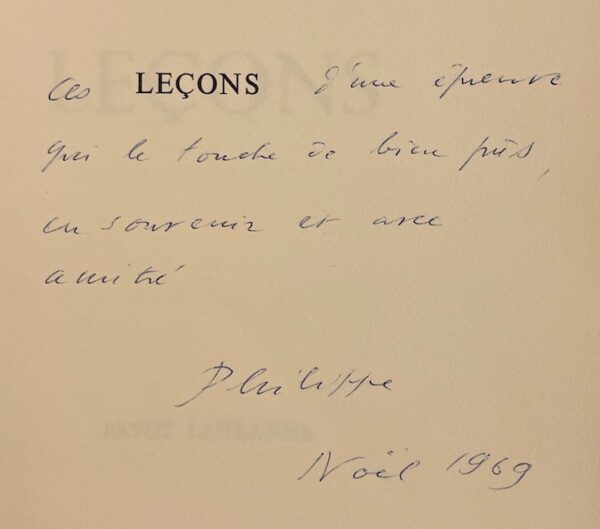 Ces LEÇONS d'une épreuve
qui le touche de bien près,
en souvenir et avec
amitié
Philippe
Noël 1969
LEÇONS
PAYOT LAUSANNE